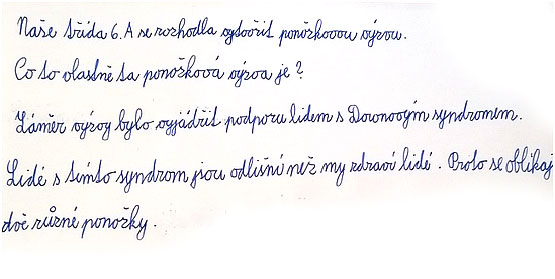 Naše třída 6.A se rozhodla vytvořit ponožkovou výzvu.
Co to vlastně ta ponožková výzva je?
Záměr výzvy bylo vyjádřit podporu lidem s Downovým syndromem.
Lidé s tímto syndrom jsou odlišní než my zdraví lidé. Proto se oblíkaj
dvě různé ponožky.